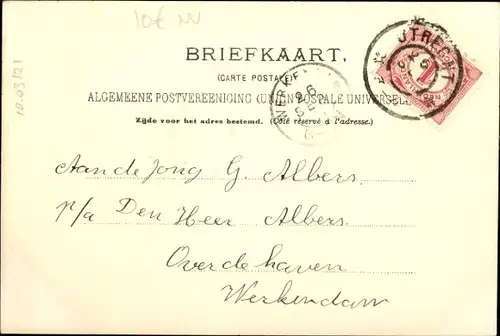 10€ nv
10.03/21
BRIEFKAART.
(CARTE POSTALE)
ALGEMEENE POSTVEREENIGING (UNION POSTALE UNIVERSELLE)
Zijde voor het adres bestemd. (Côté réservé à l'adresse.)
UTRECHT
Aan de Jong G. Albers.
p/a Den Heer Albers.
Over de haven
Werkendam